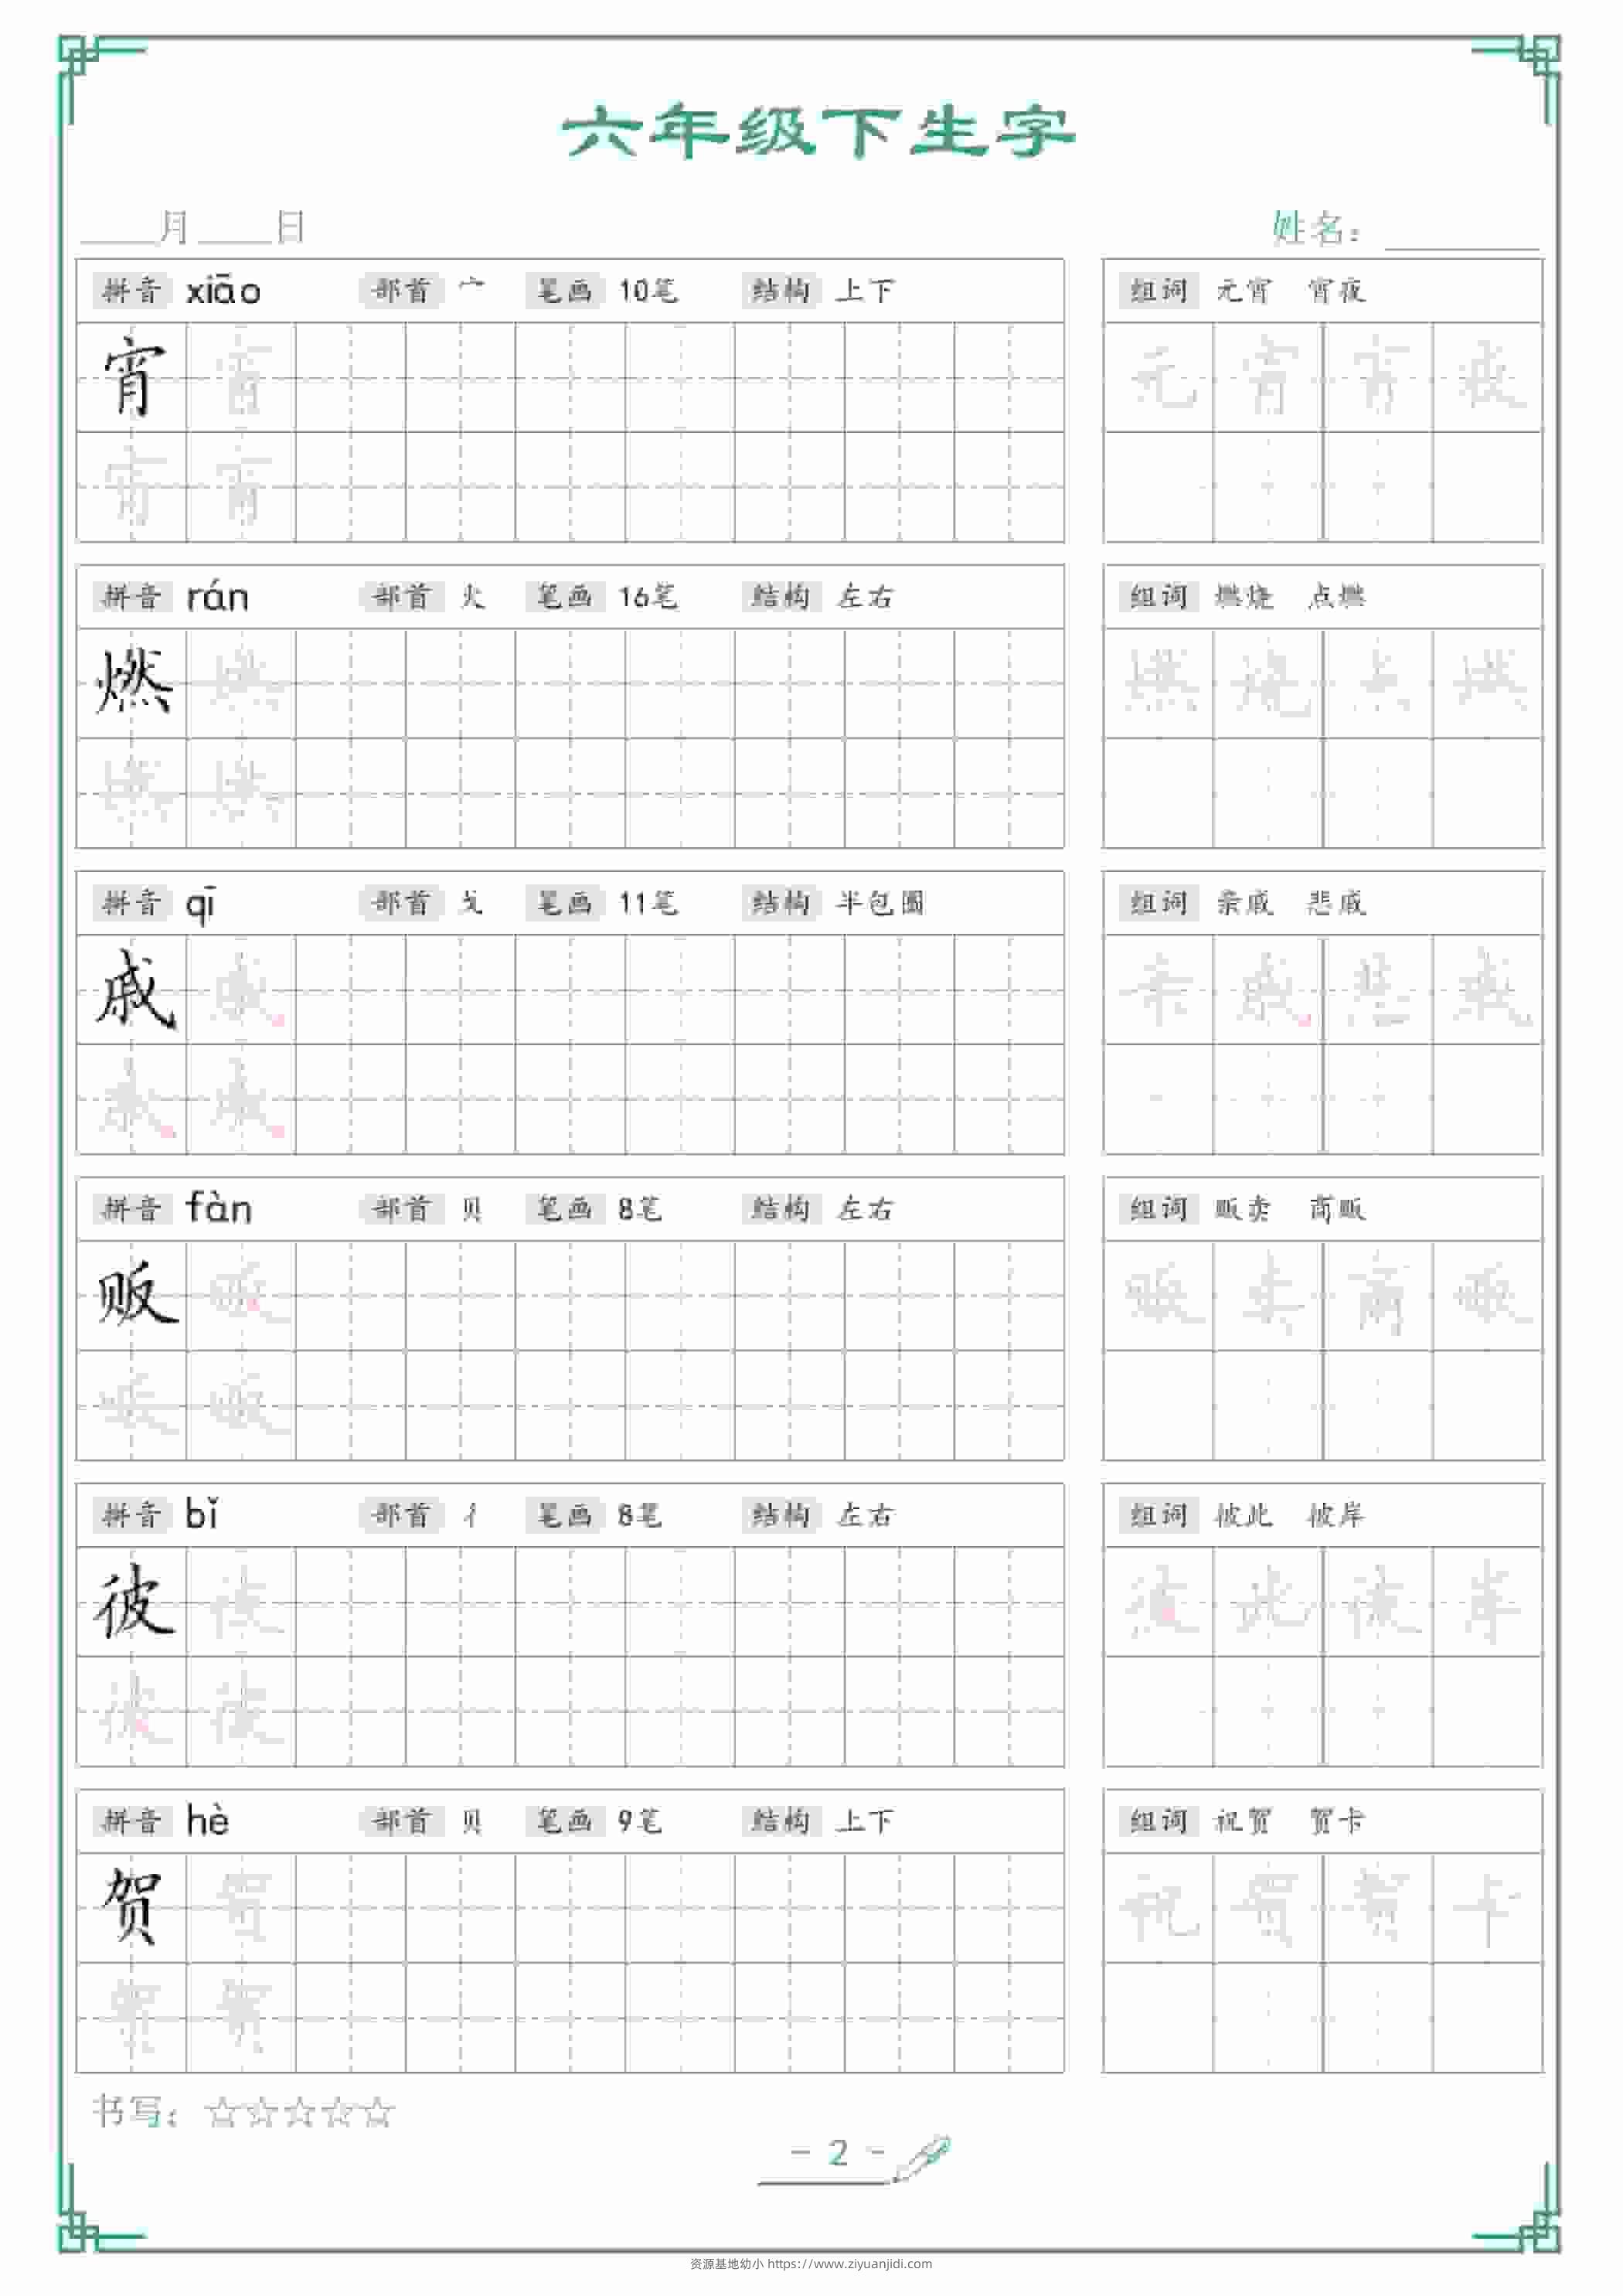 六年级下生字
____月____日 姓名：________
拼音 xiāo 部首 宀 笔画 10笔 结构 上下 组词 元宵 宵夜
宵 宵 元 宵 宵 夜
宵 宵
拼音 rán 部首 火 笔画 16笔 结构 左右 组词 燃烧 点燃
燃 燃 燃 烧 点 燃
燃 燃
拼音 qī 部首 戈 笔画 11笔 结构 半包围 组词 亲戚 悲戚
戚 戚 亲 戚 悲 戚
戚 戚
拼音 fàn 部首 贝 笔画 8笔 结构 左右 组词 贩卖 商贩
贩 贩 贩 卖 商 贩
贩 贩
拼音 bǐ 部首 彳 笔画 8笔 结构 左右 组词 彼此 彼岸
彼 彼 彼 此 彼 岸
彼 彼
拼音 hè 部首 贝 笔画 9笔 结构 上下 组词 祝贺 贺卡
贺 贺 祝 贺 贺 卡
贺 贺
书写：☆☆☆☆☆
- 2 -
资源基地幼小 https://www.ziyuanjidi.com